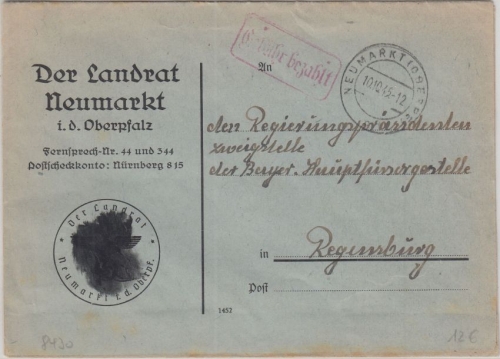 Der Landrat
Neumarkt
i. d. Oberpfalz
Fernsprech-Nr. 44 und 344
Postscheckkonto: Nürnberg 8 15
Der Landrat
Neumarkt i. d. Oberpf.
Gebühr bezahlt
NEUMARKT (OBERPF)
10.10.45-12
An
den Regierungspräsidenten
Zweigstelle
der Bayer. Hauptfürsorgestelle
in Regensburg
Post
1452
8430
12€